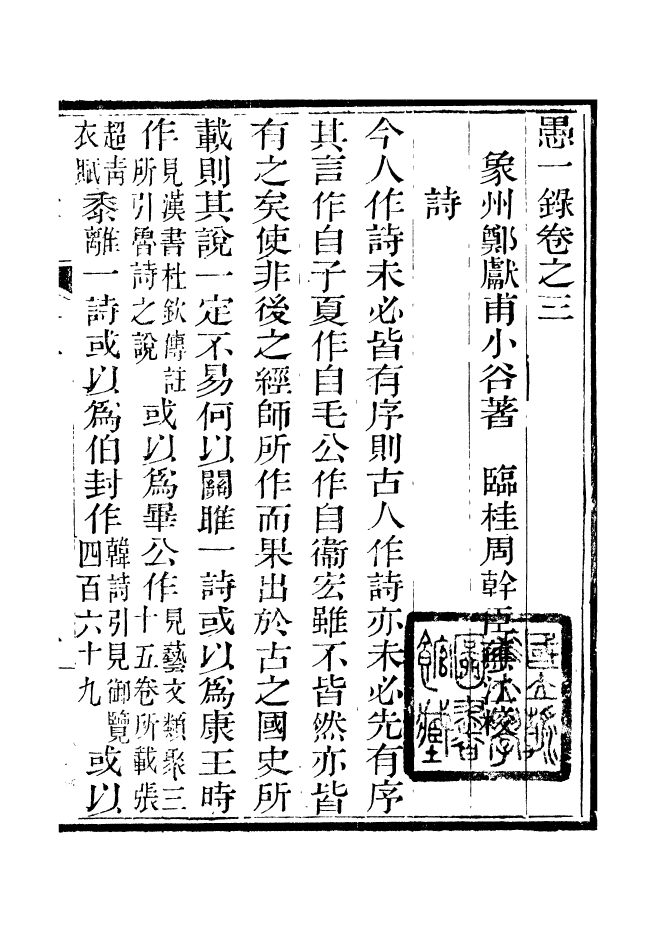 愚一錄卷之三
象州鄭獻甫小谷著　臨桂周幹臣
詩
今人作詩未必皆有序則古人作詩亦未必先有序
其言作自子夏作自毛公作自衞宏雖不皆然亦皆
有之矣使非後之經師所作而果出於古之國史所
載則其說一定不易何以關雎一詩或以爲康王時
作見漢書杜欽傳註所引魯詩之說或以爲畢公作見藝文類聚三十五卷所載張
超誚衣賦黍離一詩或以爲伯封作韓詩引見御覽四百六十九或以